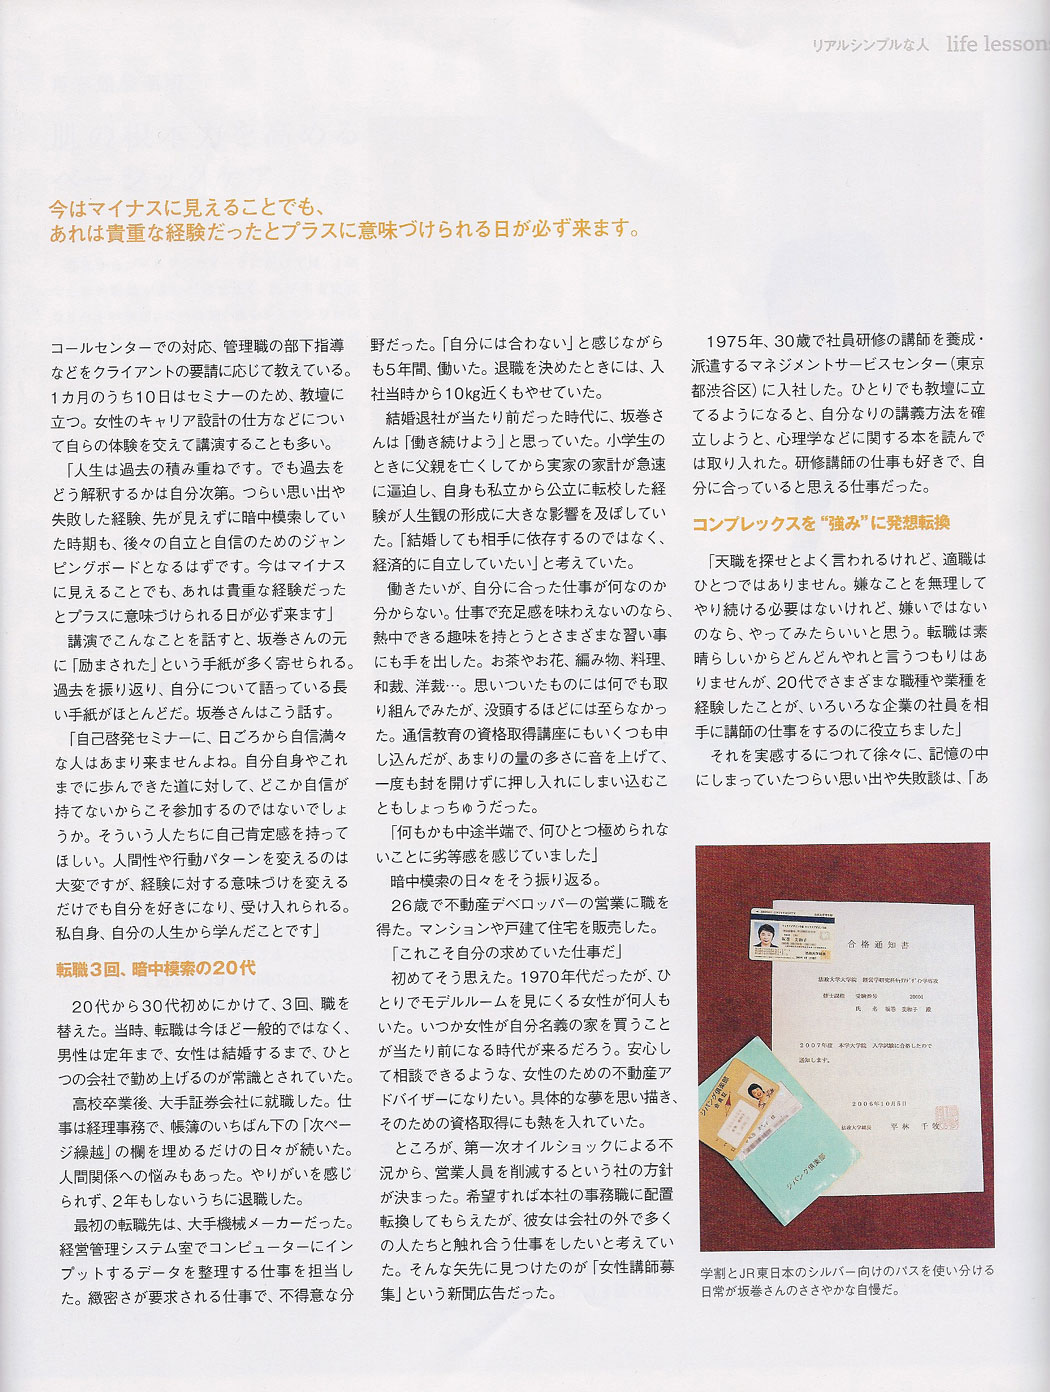 リアルシンプルな人 life lessons
今はマイナスに見えることでも、
あれは貴重な経験だったとプラスに意味づけられる日が必ず来ます。
コールセンターでの対応、管理職の部下指導
などをクライアントの要請に応じて教えている。
1カ月のうち10日はセミナーのため、教壇に
立つ。女性のキャリア設計の仕方などについ
て自らの体験を交えて講演することも多い。
「人生は過去の積み重ねです。でも過去を
どう解釈するかは自分次第。つらい思い出や
失敗した経験、先が見えずに暗中模索してい
た時期も、後々の自立と自信のためのジャン
ピングボードとなるはずです。今はマイナス
に見えることでも、あれは貴重な経験だった
とプラスに意味づけられる日が必ず来ます」
講演でこんなことを話すと、坂巻さんの元
に「励まされた」という手紙が多く寄せられる。
過去を振り返り、自分について語っている長
い手紙がほとんどだ。坂巻さんはこう話す。
「自己啓発セミナーに、日ごろから自信満々
な人はあまり来ませんよね。自分自身やこれ
までに歩んできた道に対して、どこか自信が
持てないからこそ参加するのではないでしょ
うか。そういう人たちに自己肯定感を持って
ほしい。人間性や行動パターンを変えるのは
大変ですが、経験に対する意味づけを変える
だけでも自分を好きになり、受け入れられる。
私自身、自分の人生から学んだことです」
転職3回、暗中模索の20代
20代から30代初めにかけて、3回、職を
替えた。当時、転職は今ほど一般的ではなく、
男性は定年まで、女性は結婚するまで、ひと
つの会社で勤め上げるのが常識とされていた。
高校卒業後、大手証券会社に就職した。仕
事は経理事務で、帳簿のいちばん下の「次ペー
ジ繰越」の欄を埋めるだけの日々が続いた。
人間関係への悩みもあった。やりがいを感じ
られず、2年もしないうちに退職した。
最初の転職先は、大手機械メーカーだった。
経営管理システム室でコンピューターにイン
プットするデータを整理する仕事を担当し
た。緻密さが要求される仕事で、不得意な分
野だった。「自分には合わない」と感じながら
も5年間、働いた。退職を決めたときには、入
社当時から10kg近くもやせていた。
結婚退社が当たり前だった時代に、坂巻さ
んは「働き続けよう」と思っていた。小学生の
ときに父親を亡くしてから実家の家計が急速
に逼迫し、自身も私立から公立に転校した経
験が人生観の形成に大きな影響を及ぼしてい
た。「結婚しても相手に依存するのではなく、
経済的に自立していたい」と考えていた。
働きたいが、自分に合った仕事が何なのか
分からない。仕事で充足感を味わえないのなら、
熱中できる趣味を持とうとさまざまな習い事
にも手を出した。お茶やお花、編み物、料理、
和裁、洋裁…。思いついたものには何でも取
り組んでみたが、没頭するほどには至らなかっ
た。通信教育の資格取得講座にもいくつも申
し込んだが、あまりの量の多さに音を上げて、
一度も封を開けずに押し入れにしまい込むこ
ともしょっちゅうだった。
「何もかも中途半端で、何ひとつ極められな
いことに劣等感を感じていました」
暗中模索の日々をそう振り返る。
26歳で不動産デベロッパーの営業に職を
得た。マンションや戸建て住宅を販売した。
「これこそ自分の求めていた仕事だ」
初めてそう思えた。1970年代だったが、ひ
とりでモデルルームを見にくる女性が何人も
いた。いつか女性が自分名義の家を買うこと
が当たり前になる時代が来るだろう。安心し
て相談できるような、女性のための不動産ア
ドバイザーになりたい。具体的な夢を思い描き、
そのための資格取得にも熱を入れていた。
ところが、第一次オイルショックによる不
況から、営業人員を削減するという社の方針
が決まった。希望すれば本社の事務職に配置
転換してもらえたが、彼女は会社の外で多く
の人たちと触れ合う仕事をしたいと考えてい
た。そんな矢先に見つけたのが「女性講師募
集」という新聞広告だった。
1975年、30歳で社員研修の講師を養成・
派遣するマネジメントサービスセンター（東京
都渋谷区）に入社した。ひとりでも教壇に立
てるようになると、自分なりの講義方法を確
立しようと、心理学などに関する本を読んで
は取り入れた。研修講師の仕事も好きで、自
分に合っていると思える仕事だった。
コンプレックスを“強み”に発想転換
「天職を探せとよく言われるけれど、適職は
ひとつではありません。嫌なことを無理して
やり続ける必要はないけれど、嫌いではない
のなら、やってみたらいいと思う。転職は素
晴らしいからどんどんやれと言うつもりはあ
りませんが、20代でさまざまな職種や業種を
経験したことが、いろいろな企業の社員を相
手に講師の仕事をするのに役立ちました」
それを実感するにつれて徐々に、記憶の中
にしまっていたつらい思い出や失敗談は、「あ
合格通知書
法政大学大学院
修士課程 受験番号
氏 名 坂巻 美和子 殿
2007年度 本学大学院 入学試験に合格したので
通知します。
2006年10月5日
法政大学総長 平林 千牧
ジパング倶楽部
会員証
ジパング倶楽部
学割とJR東日本のシルバー向けのパスを使い分ける
日常が坂巻さんのささやかな自慢だ。